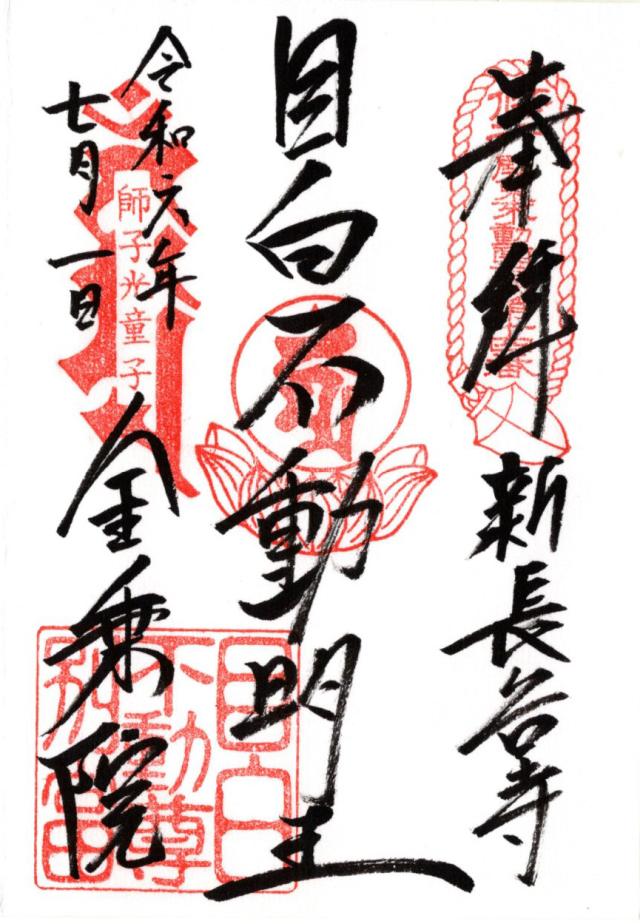 奉拝
新長谷寺
目白不動明王
令和六年
七月一日
師子光童子
金乗院
目白
不動尊
別當